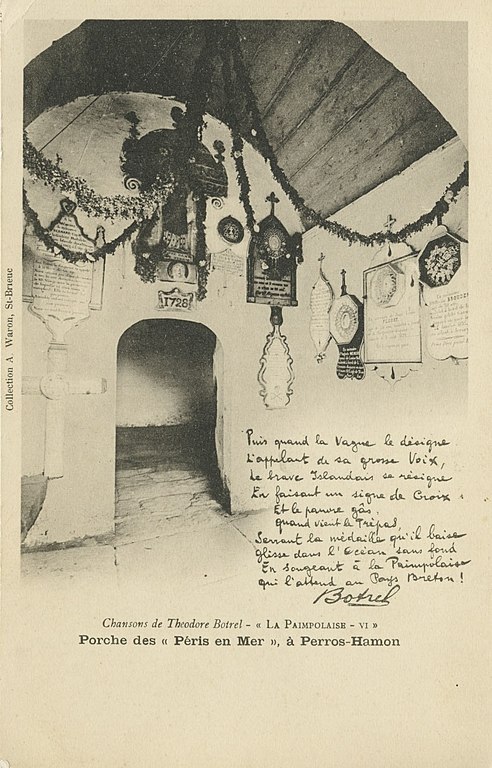 1728
Puis quand la Vague le désigne
L'appelant de sa grosse Voix,
Le brave Islandais se résigne
En faisant un signe de Croix :
Et le pauvre gâs,
Quand vient le Trépas,
Serrant la médaille qu'il baise
Glisse dans l'Océan sans fond
En songeant à la Paimpolaise
qui l'attend au Pays Breton !
Botrel
Chansons de Theodore Botrel - « LA PAIMPOLAISE - VI »
Porche des « Péris en Mer », à Perros-Hamon
Collection A. Waron, St-Brieuc